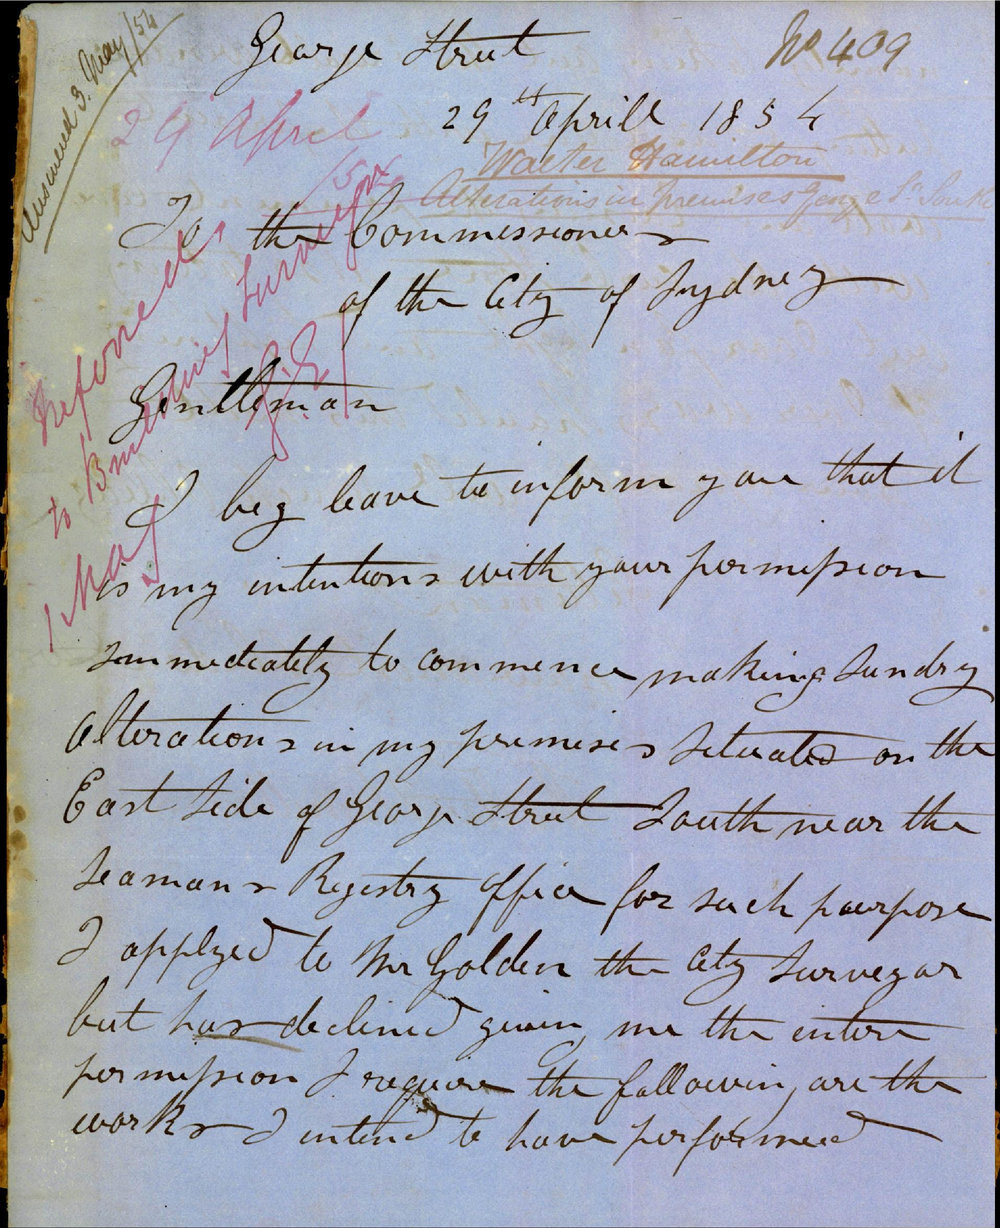 Answered 3. May/54
No 409
George Street
29th Aprill 1854
29 April
/54
Walter Hamilton
Alterations in premises George St South
To the Commissioners
of the City of Sydney
Refered
to Building Surveyor
1 May
Gentleman
I beg leave to inform you that it
is my intentions with your permission
immediately to commence making Sundry
Alterations in my premises Situated on the
East Side of George Street South near the
Seamans Registry Office for such pourpose
I applyed to Mr Golden the City Surveyor
but has declined givin me the entire
permission I require the followin, are the
works I intend to have performed